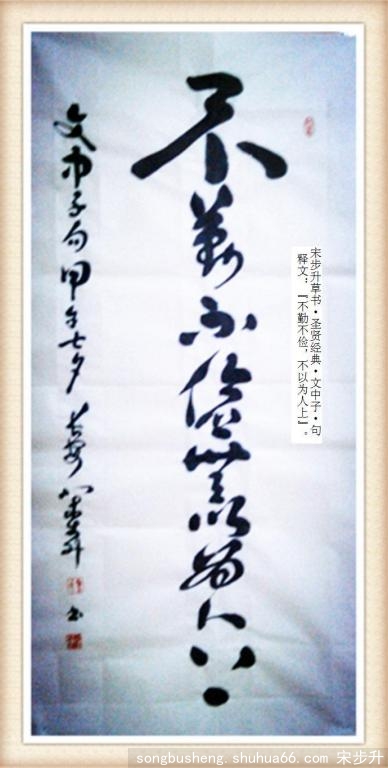 宋步升草书·圣贤经典·文中子·句
释文：『不勤不俭，不以为人上』。
不勤不儉無以為人上
文中子句甲午七夕长安宋步升书
songbusheng.shuhua66.com 宋步升